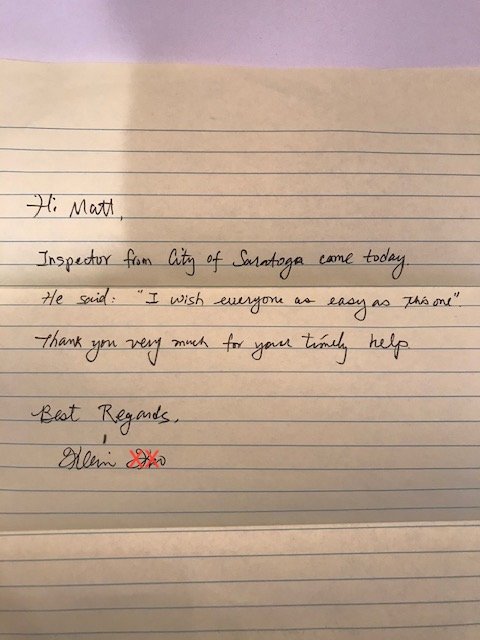 Hi Matt,
Inspector from City of Saratoga came today.
He said: "I wish everyone as easy as this one".
Thank you very much for your timely help
Best Regards,